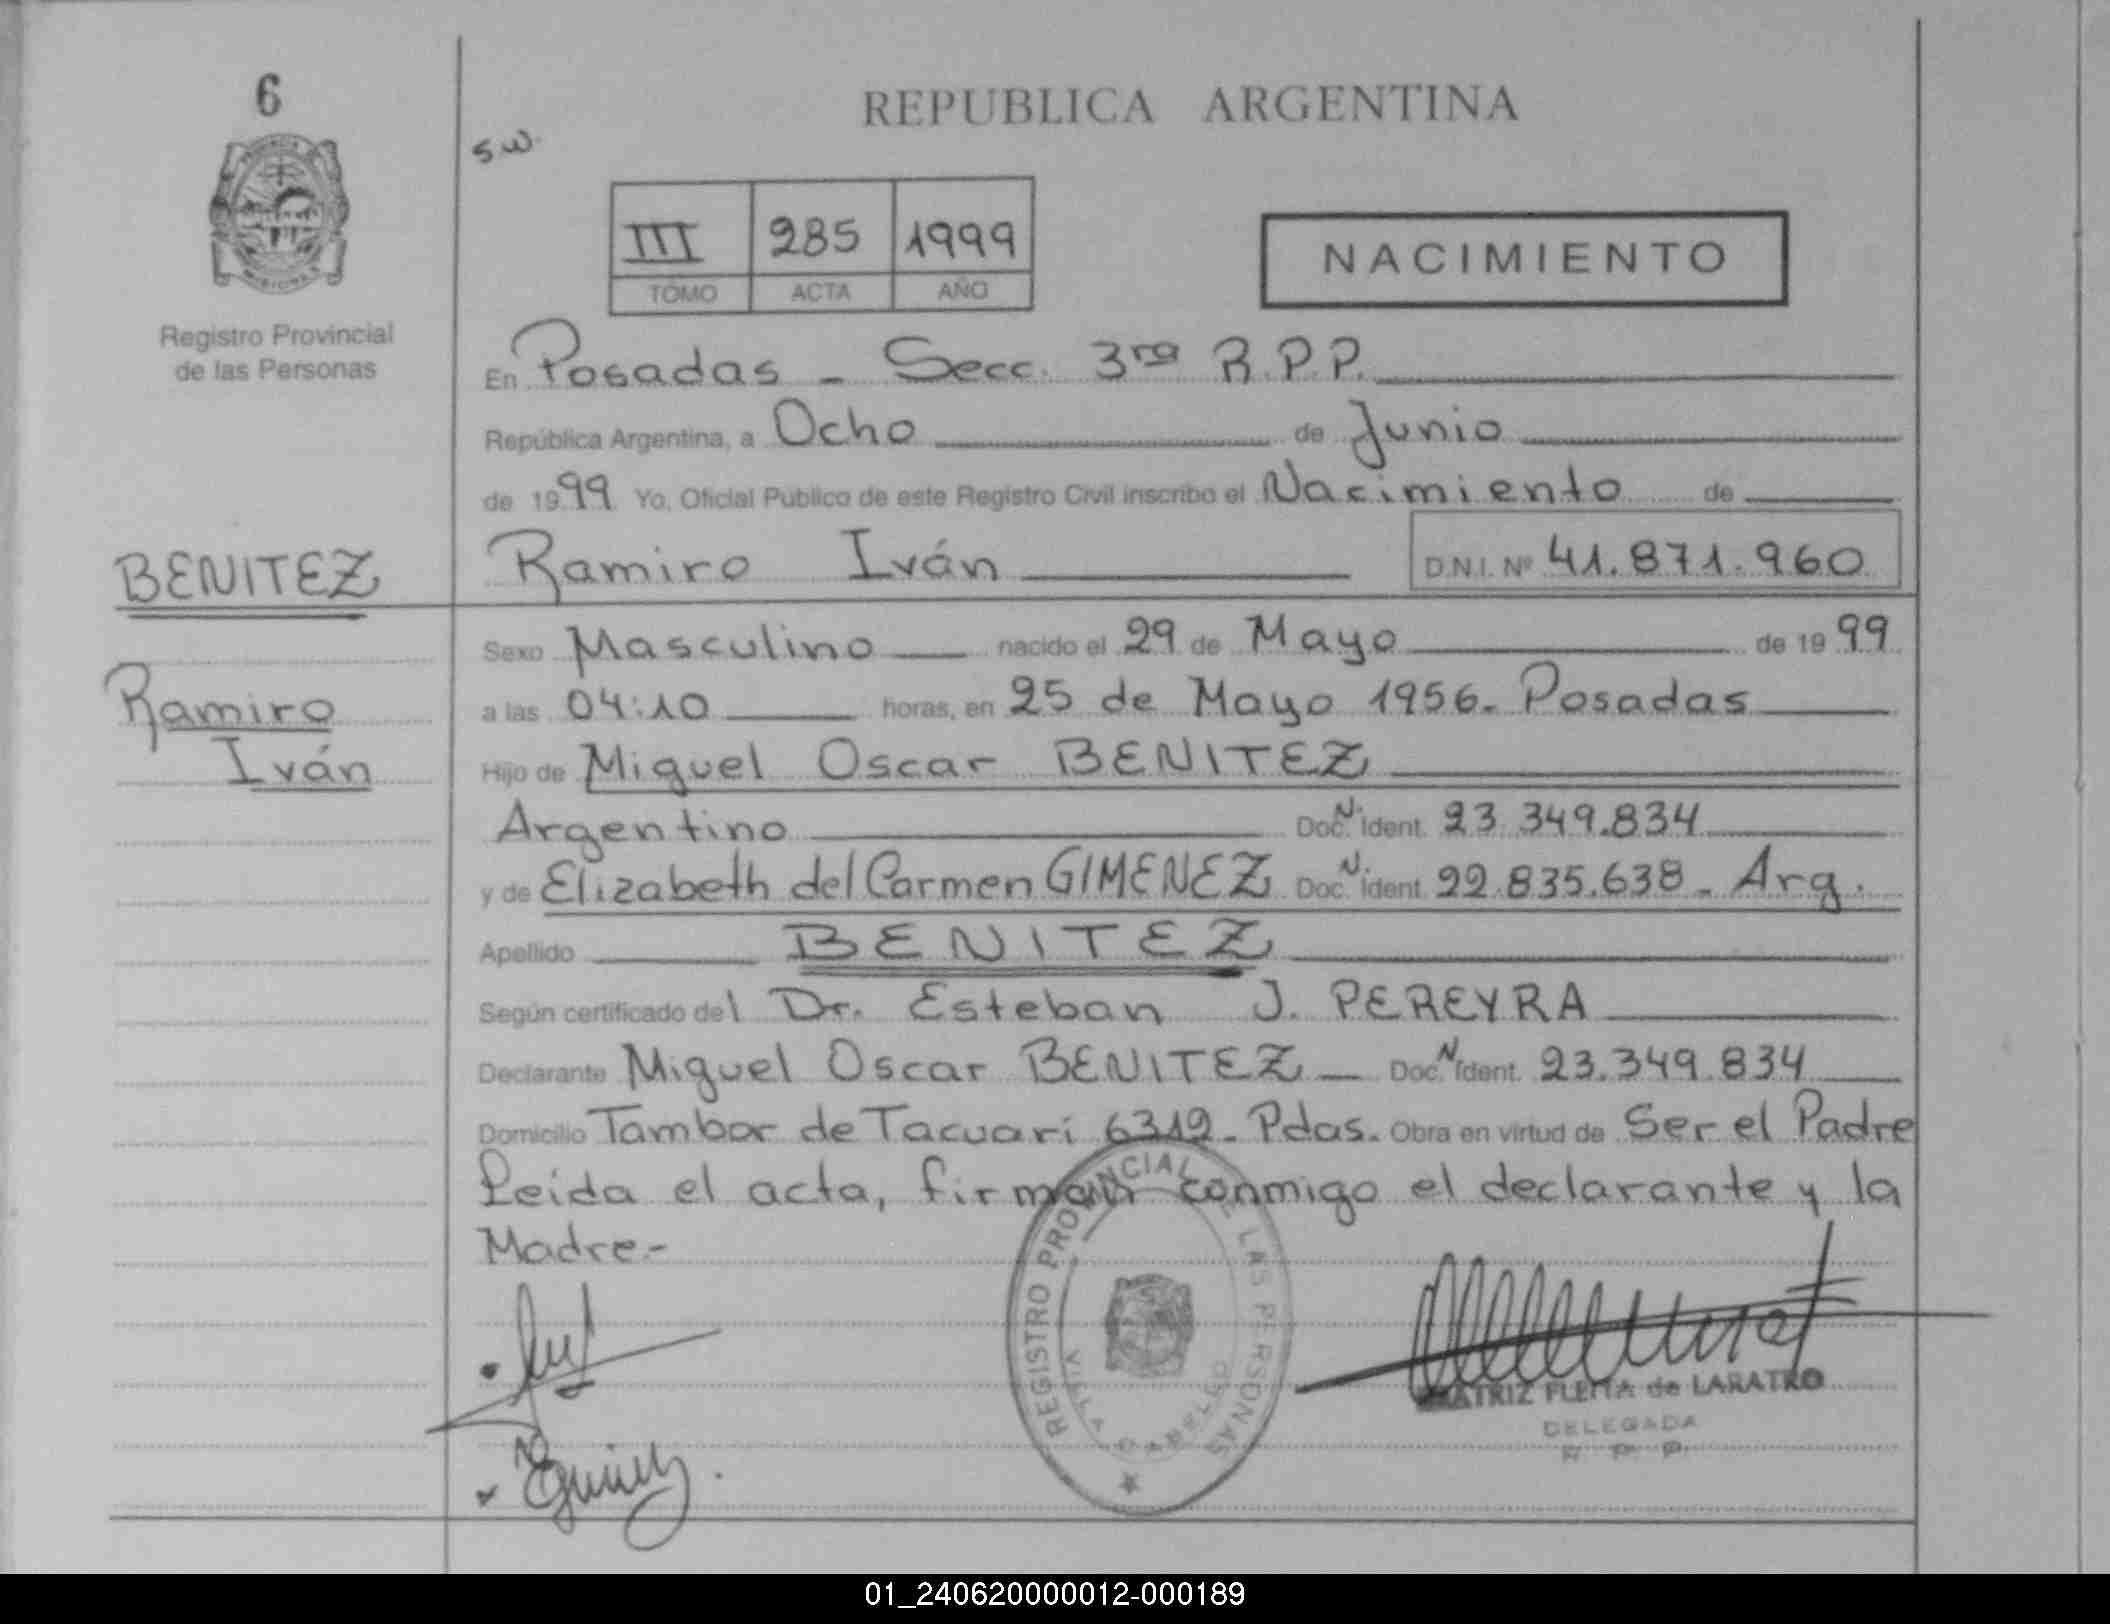 6
REPUBLICA ARGENTINA
s.w.
III 285 1999
TOMO ACTA AÑO
NACIMIENTO
Registro Provincial
de las Personas
En Posadas - Secc. 3ra R.P.P.
República Argentina, a Ocho de Junio
de 1999 Yo, Oficial Público de este Registro Civil inscribo el Nacimiento de
BENITEZ
Ramiro Iván D.N.I. Nº 41.871.960
Sexo Masculino nacido el 29 de Mayo de 1999
Ramiro
Iván
a las 04:10 horas, en 25 de Mayo 1956. Posadas
Hijo de Miguel Oscar BENITEZ
Argentino Doc. N. Ident. 23.349.834
y de Elizabeth del Carmen GIMENEZ Doc. N. Ident. 22.835.638 - Arg.
Apellido BENITEZ
Según certificado del Dr. Esteban J. PEREYRA
Declarante Miguel Oscar BENITEZ Doc. N. Ident. 23.349.834
Domicilio Tambor de Tacuari 6312 - Pdas. Obra en virtud de Ser el Padre
Leida el acta, firman conmigo el declarante y la
Madre.-
REGISTRO PROVINCIAL DE LAS PERSONAS
VILLA CABELLO
BEATRIZ FLEITA de LARATRO
DELEGADA
R. P. P.
01_240620000012-000189